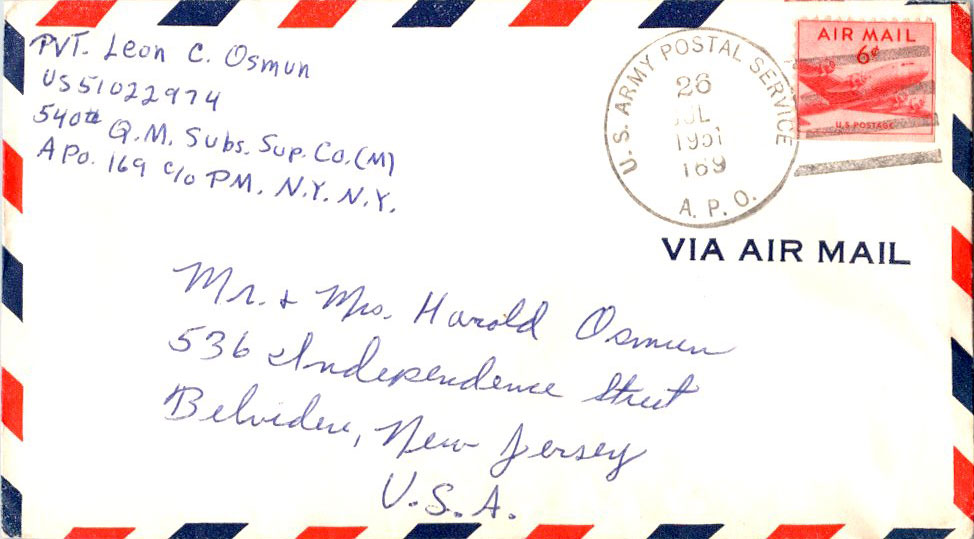 PVT. Leon C. Osmun
US51022974
540th Q.M. Subs. Sup. Co. (M)
APO. 169 c/o PM. N.Y. N.Y.
U.S. ARMY POSTAL SERVICE
26
JUL
1951
169
A. P. O.
AIR MAIL
6¢
U.S. POSTAGE
VIA AIR MAIL
Mr. & Mrs. Harold Osmun
536 Independence Street
Belvidere, New Jersey
U.S.A.